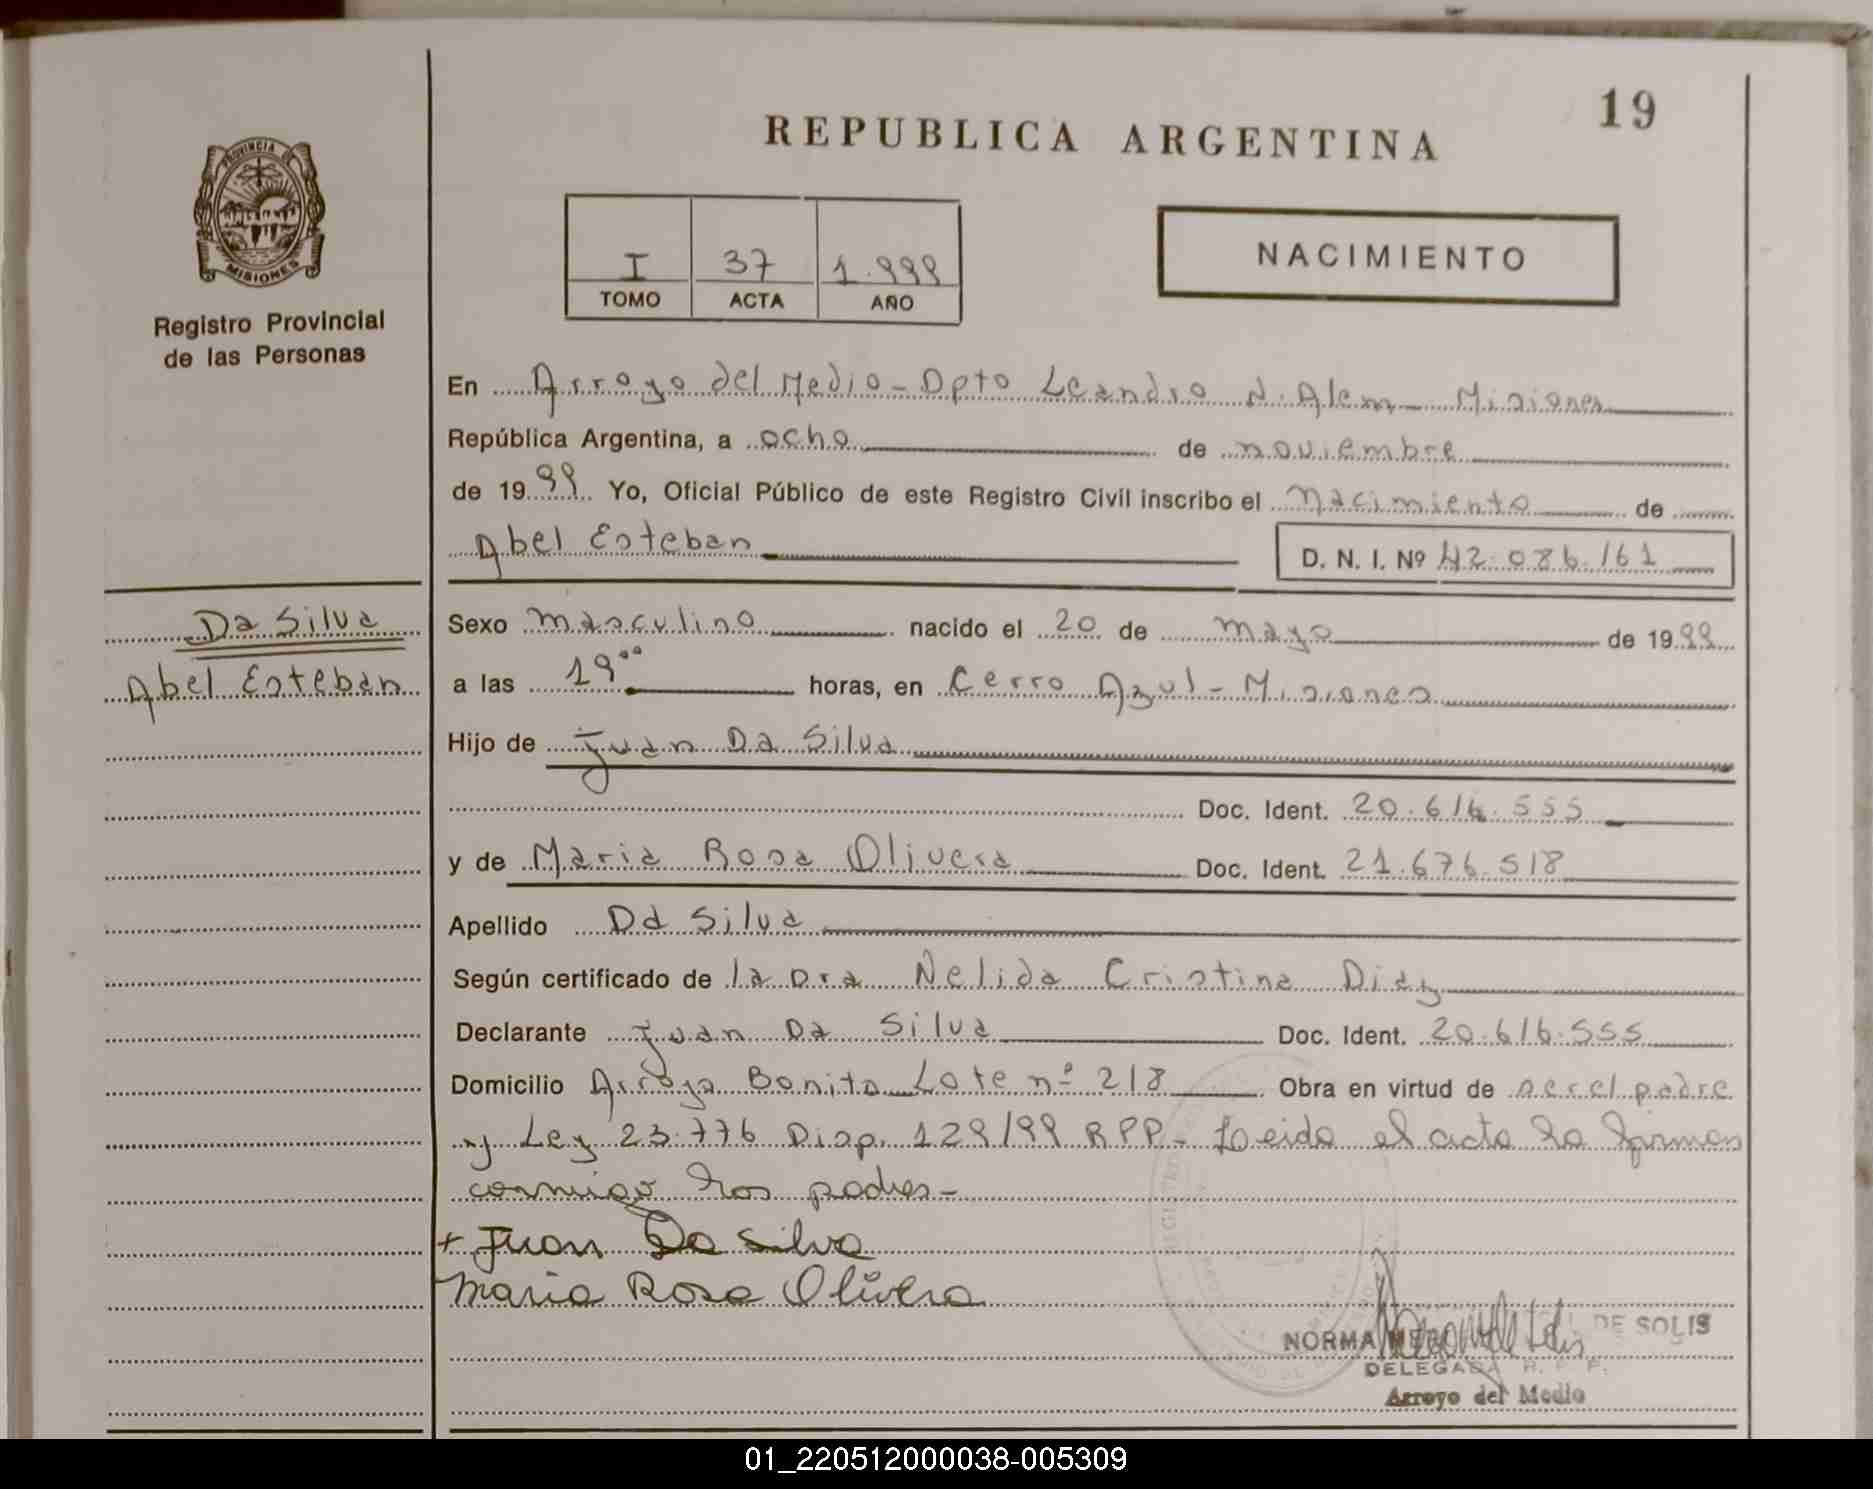 19
REPUBLICA ARGENTINA
PROVINCIA DE
MISIONES
Registro Provincial
de las Personas
I 37 1.999
TOMO ACTA AÑO
NACIMIENTO
En Arroyo del Medio - Dpto Leandro N. Alem - Misiones
República Argentina, a ocho de noviembre
de 1999 Yo, Oficial Público de este Registro Civil inscribo el nacimiento de
Abel Esteban D. N. I. Nº 42.086.161
Da Silva
Abel Esteban
Sexo masculino nacido el 20 de mayo de 1999
a las 19°° horas, en Cerro Azul - Misiones
Hijo de Juan Da Silva
Doc. Ident. 20.616.555
y de Maria Rosa Olivera Doc. Ident. 21.676.518
Apellido Da Silva
Según certificado de la Dra Nelida Cristina Diaz
Declarante Juan Da Silva Doc. Ident. 20.616.555
Domicilio Arroyo Bonito Lote nº 218 Obra en virtud de ser el padre
y Ley 23.776 Disp. 129/99 RPP - Leida el acta la firman
conmigo los padres -
+ Juan Da Silva
Maria Rosa Olivera
NORMA DE SOLIS
DELEGADA R. P. P.
Arroyo del Medio
01_220512000038-005309